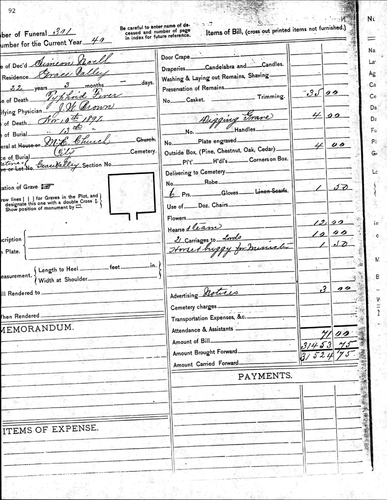 92
ber of Funeral 391
umber for the Current Year 40
Be careful to enter name of deceased and number of page in index for future reference.
Items of Bill, (cross out printed items not furnished.)
e of Dec'd Simeon Noell
Residence Grass Valley
22 years 3 months days.
e of Death Typhoid Fever
ifying Physician
e of Death, Nov. 10th 189
e of Burial 13th
eral at House or M.E. Church Church.
e of Burial Cemetery.
or Lot No. Section No.
ation of Grave
raw lines [ ] for Graves in the Plot, and designate this one with a double Cross
Show position of monument by
scription
n Plate.
easurement. { Length to Heel feet in.
Width at Shoulder
ill Rendered to
When Rendered
MEMORANDUM.
ITEMS OF EXPENSE.
Door Crape
Draperies Candelabra and Candles.
Washing & Laying out Remains, Shaving
Preservation of Remains
No. Casket. Trimming. 35 00
Digging Grave 4 00
Handles
Plate engraved 4 00
Outside Box, (Pine, Chestnut, Oak, Cedar)
P'l'r H'dl's Corners on Box.
Delivering to Cemetery
No. Robe
6 Prs. Gloves Linen Scarfs 1 50
Use of Doz. Chairs
Flowers
Hearse & team 12 00
2 Carriages to 10 00
Horse & buggy for Minister 1 50
Advertising Notices 3 00
Cemetery charges
Transportation Expenses, &c.
Attendance & Assistants
Amount of Bill 71 00
Amount Brought Forward 31453 75
Amount Carried Forward 31524 75
PAYMENTS.